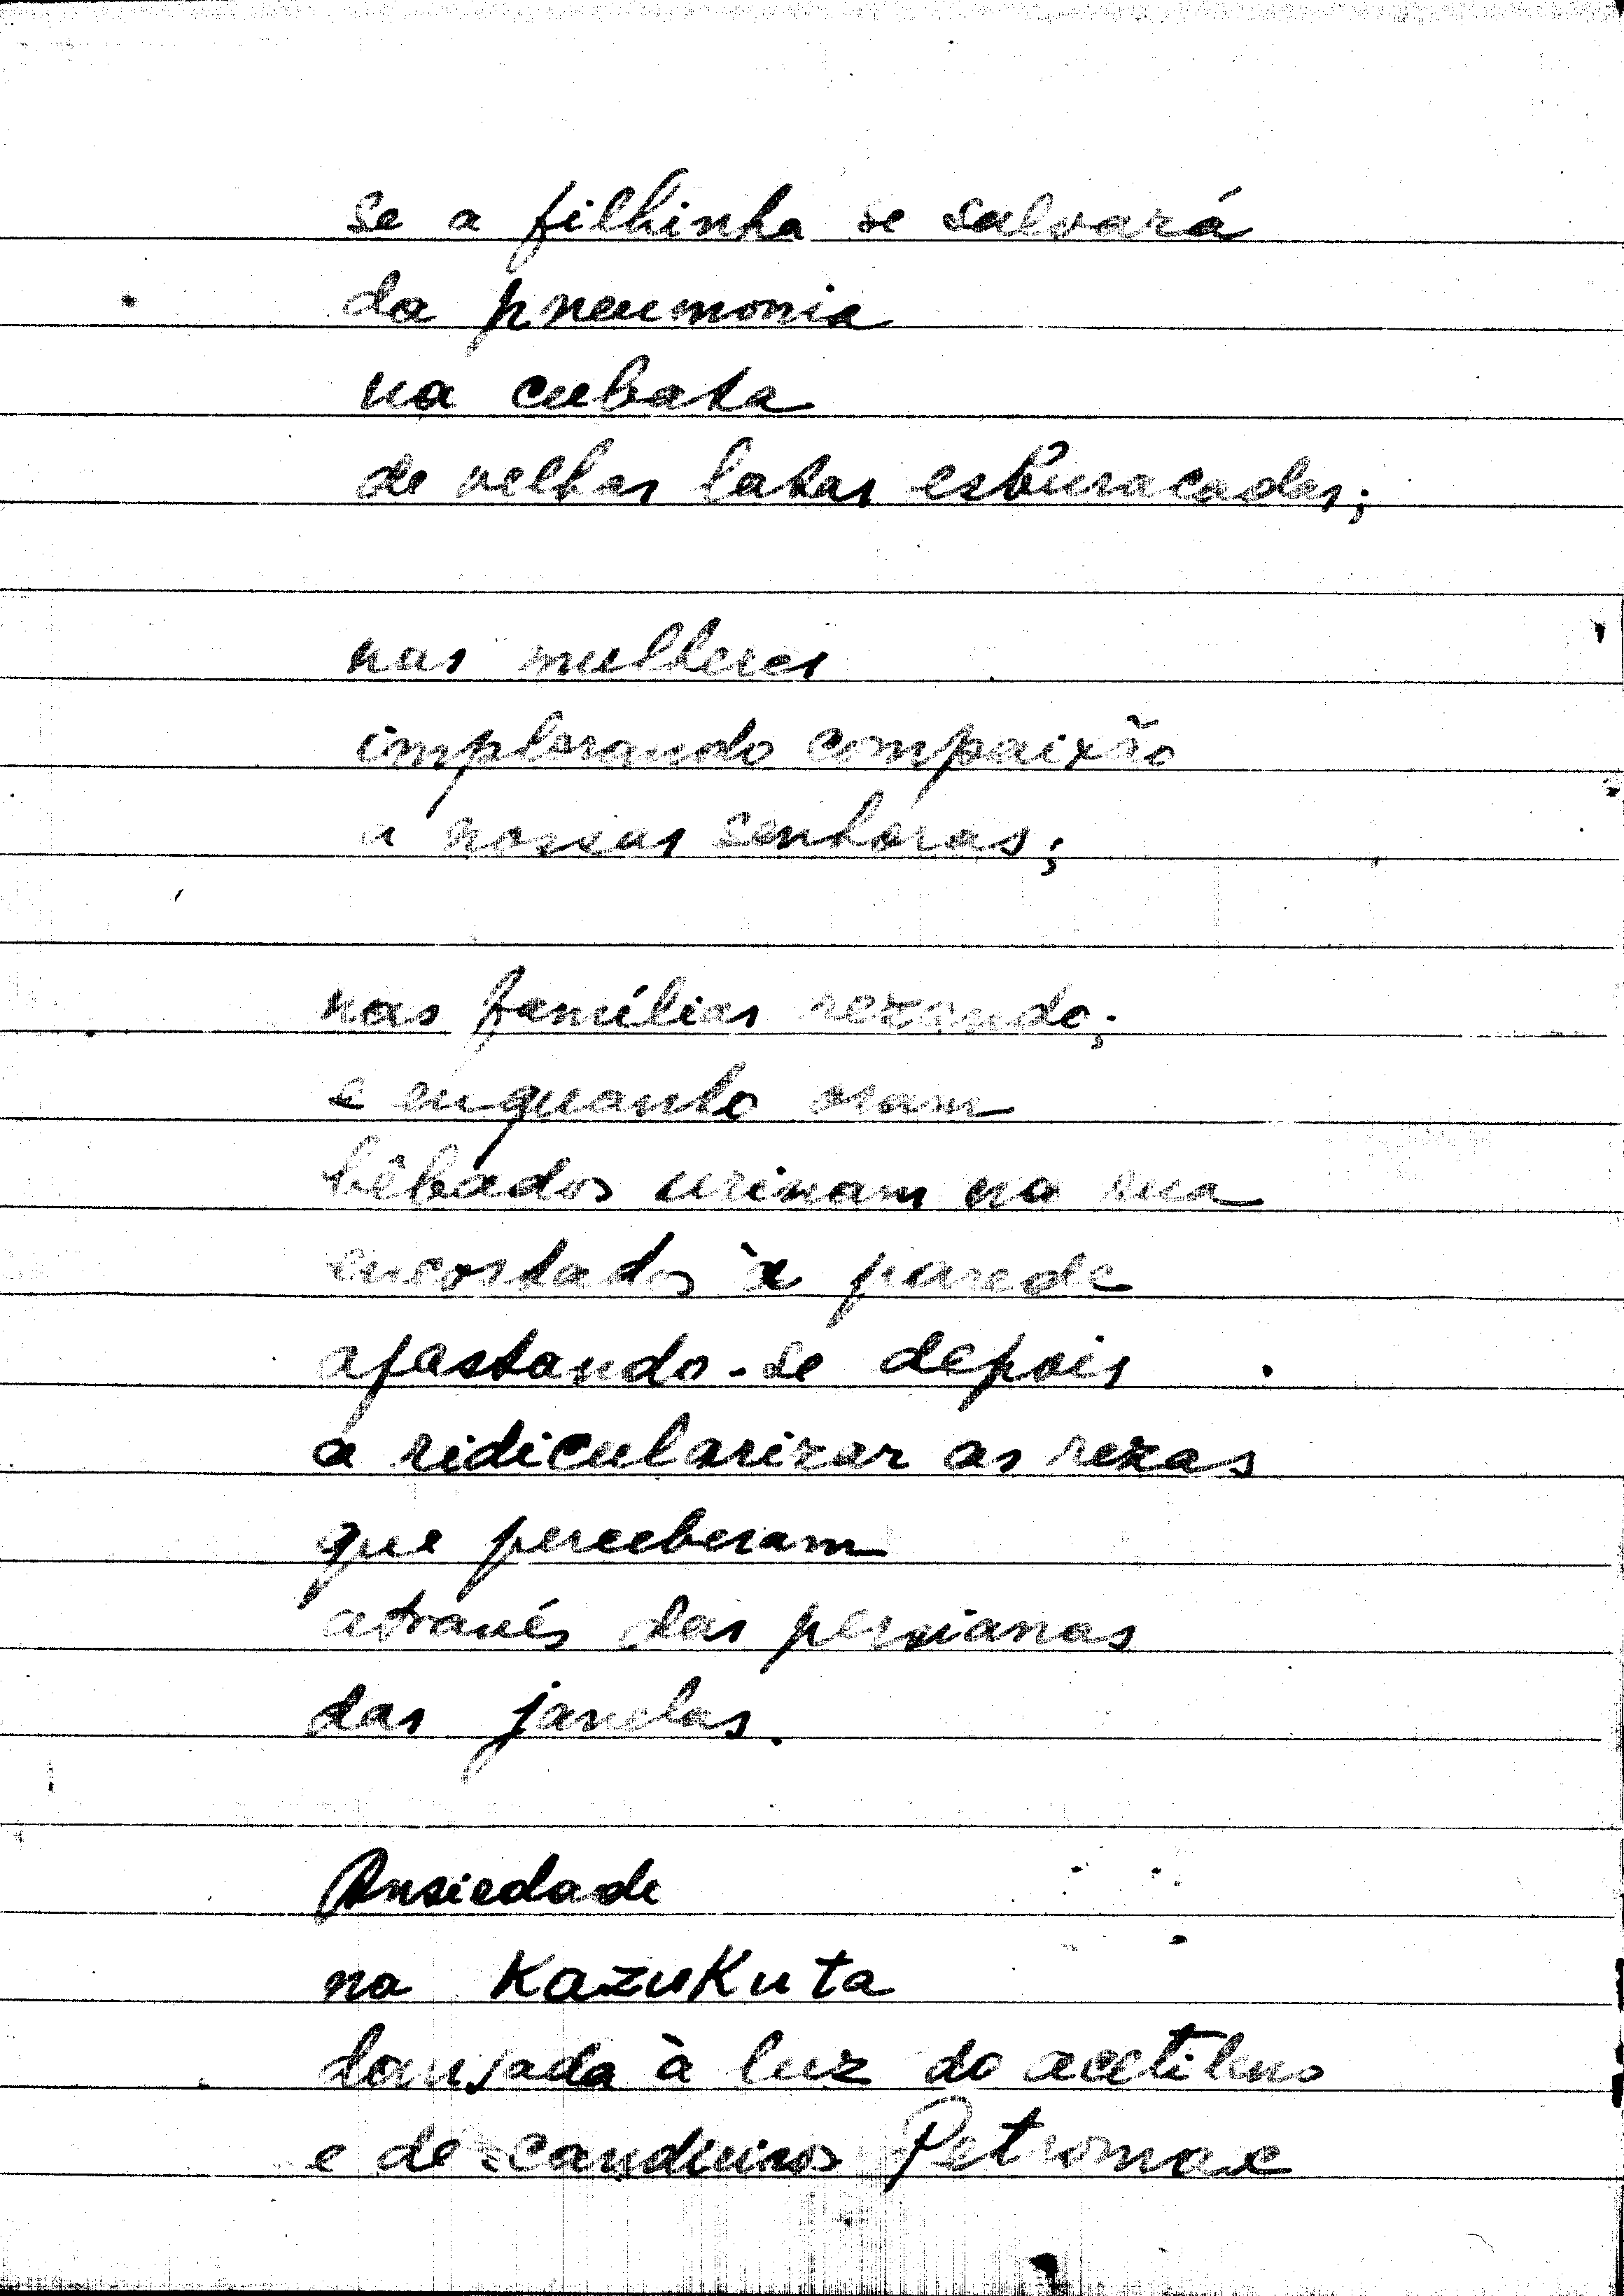 se a filhinha se salvará
da pneumonia
na cubata
de velhas latas esburacadas;
nas mulheres
implorando compaixão
a nossas senhoras;
nas famílias rezando;
e enquanto oram
bêbados urinam na rua
encostados à parede
afastando-se depois
a ridicularizar as rezas
que perceberam
através das persianas
das janelas.
Ansiedade
na KazuKuta
dansada à luz do acetileno
e de candieiros Petromax